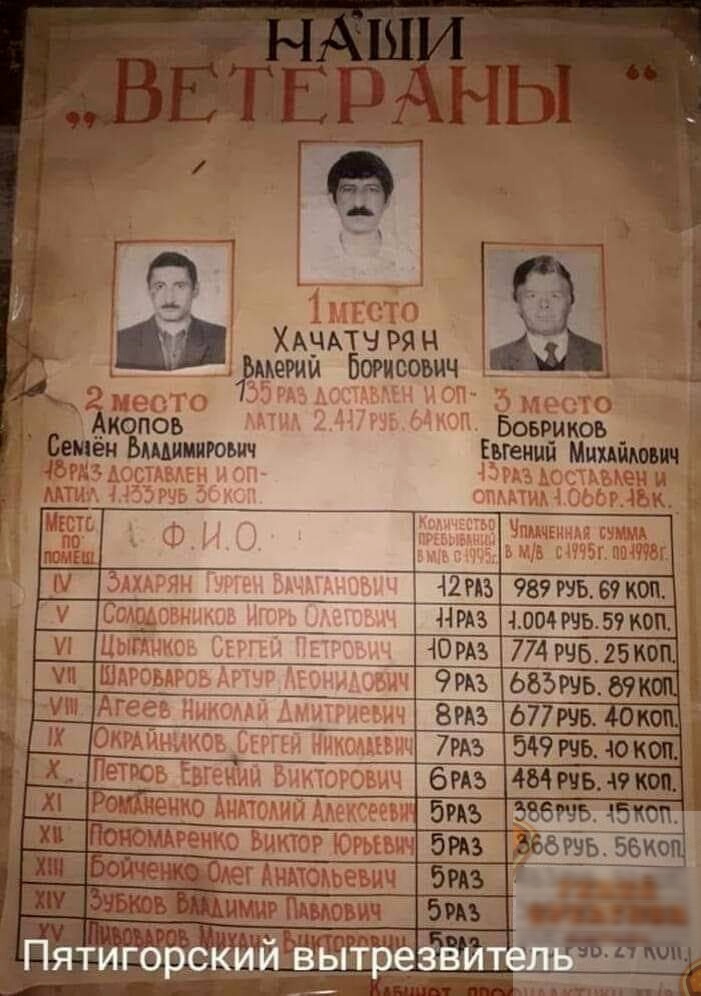 НАШИ
„ВЕТЕРАНЫ“
1 место
ХАЧАТУРЯН
Валерий Борисович
135 РАЗ ДОСТАВЛЕН И ОП-
ЛАТИЛ 2.417 РУБ. 64 КОП.
2 место
Акопов
Семён Владимирович
18 РАЗ ДОСТАВЛЕН И ОП-
ЛАТИЛ 1.133 РУБ 36 КОП.
3 место
Бобриков
Евгений Михайлович
13 РАЗ ДОСТАВЛЕН И
ОПЛАТИЛ 1.066 Р. 18 К.
МЕСТО ПО ПОМЕЩ. Ф.И.О. КОЛИЧЕСТВО ПРЕБЫВАНИЙ В М/В С 1995г. УПЛАЧЕННАЯ СУММА В М/В С 1995г. ПО 1998г.
IV ЗАХАРЯН ГУРГЕН ВАЧАГАНОВИЧ 12 РАЗ 989 РУБ. 69 КОП.
V СОЛОДОВНИКОВ ИГОРЬ ОЛЕГОВИЧ 11 РАЗ 1.004 РУБ. 59 КОП.
VI ЦЫГАНКОВ СЕРГЕЙ ПЕТРОВИЧ 10 РАЗ 774 РУБ. 25 КОП.
VII ШАРОВАРОВ АРТУР ЛЕОНИДОВИЧ 9 РАЗ 683 РУБ. 89 КОП.
VIII АГЕЕВ НИКОЛАЙ ДМИТРИЕВИЧ 8 РАЗ 677 РУБ. 40 КОП.
IX ОКРАЙНИКОВ СЕРГЕЙ НИКОЛАЕВИЧ 7 РАЗ 549 РУБ. 10 КОП.
X ПЕТРОВ ЕВГЕНИЙ ВИКТОРОВИЧ 6 РАЗ 484 РУБ. 19 КОП.
XI РОМАНЕНКО АНАТОЛИЙ АЛЕКСЕЕВИЧ 5 РАЗ 386 РУБ. 15 КОП.
XII ПОНОМАРЕНКО ВИКТОР ЮРЬЕВИЧ 5 РАЗ 368 РУБ. 56 КОП
XIII БОЙЧЕНКО ОЛЕГ АНАТОЛЬЕВИЧ 5 РАЗ
XIV ЗУБКОВ ВЛАДИМИР ПАВЛОВИЧ 5 РАЗ
XV ПИВОВАРОВ МИХАИЛ ВИКТОРОВИЧ 5 РАЗ РУБ. 27 КОП.
Пятигорский вытрезвитель
КАБИНЕТ ПРОФИЛАКТИКИ М/В